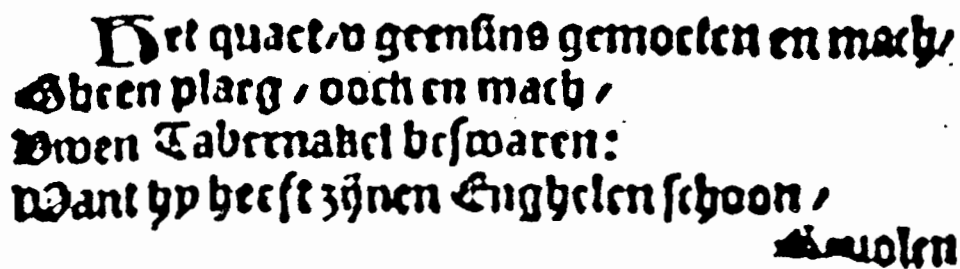 Het quaet/v geensins gemoeten en mach/
Gheen plaeg / ooch en mach /
Uwen Tabernakel beswaren:
Want hy heeft zijnen Enghelen schoon /
Beuolen